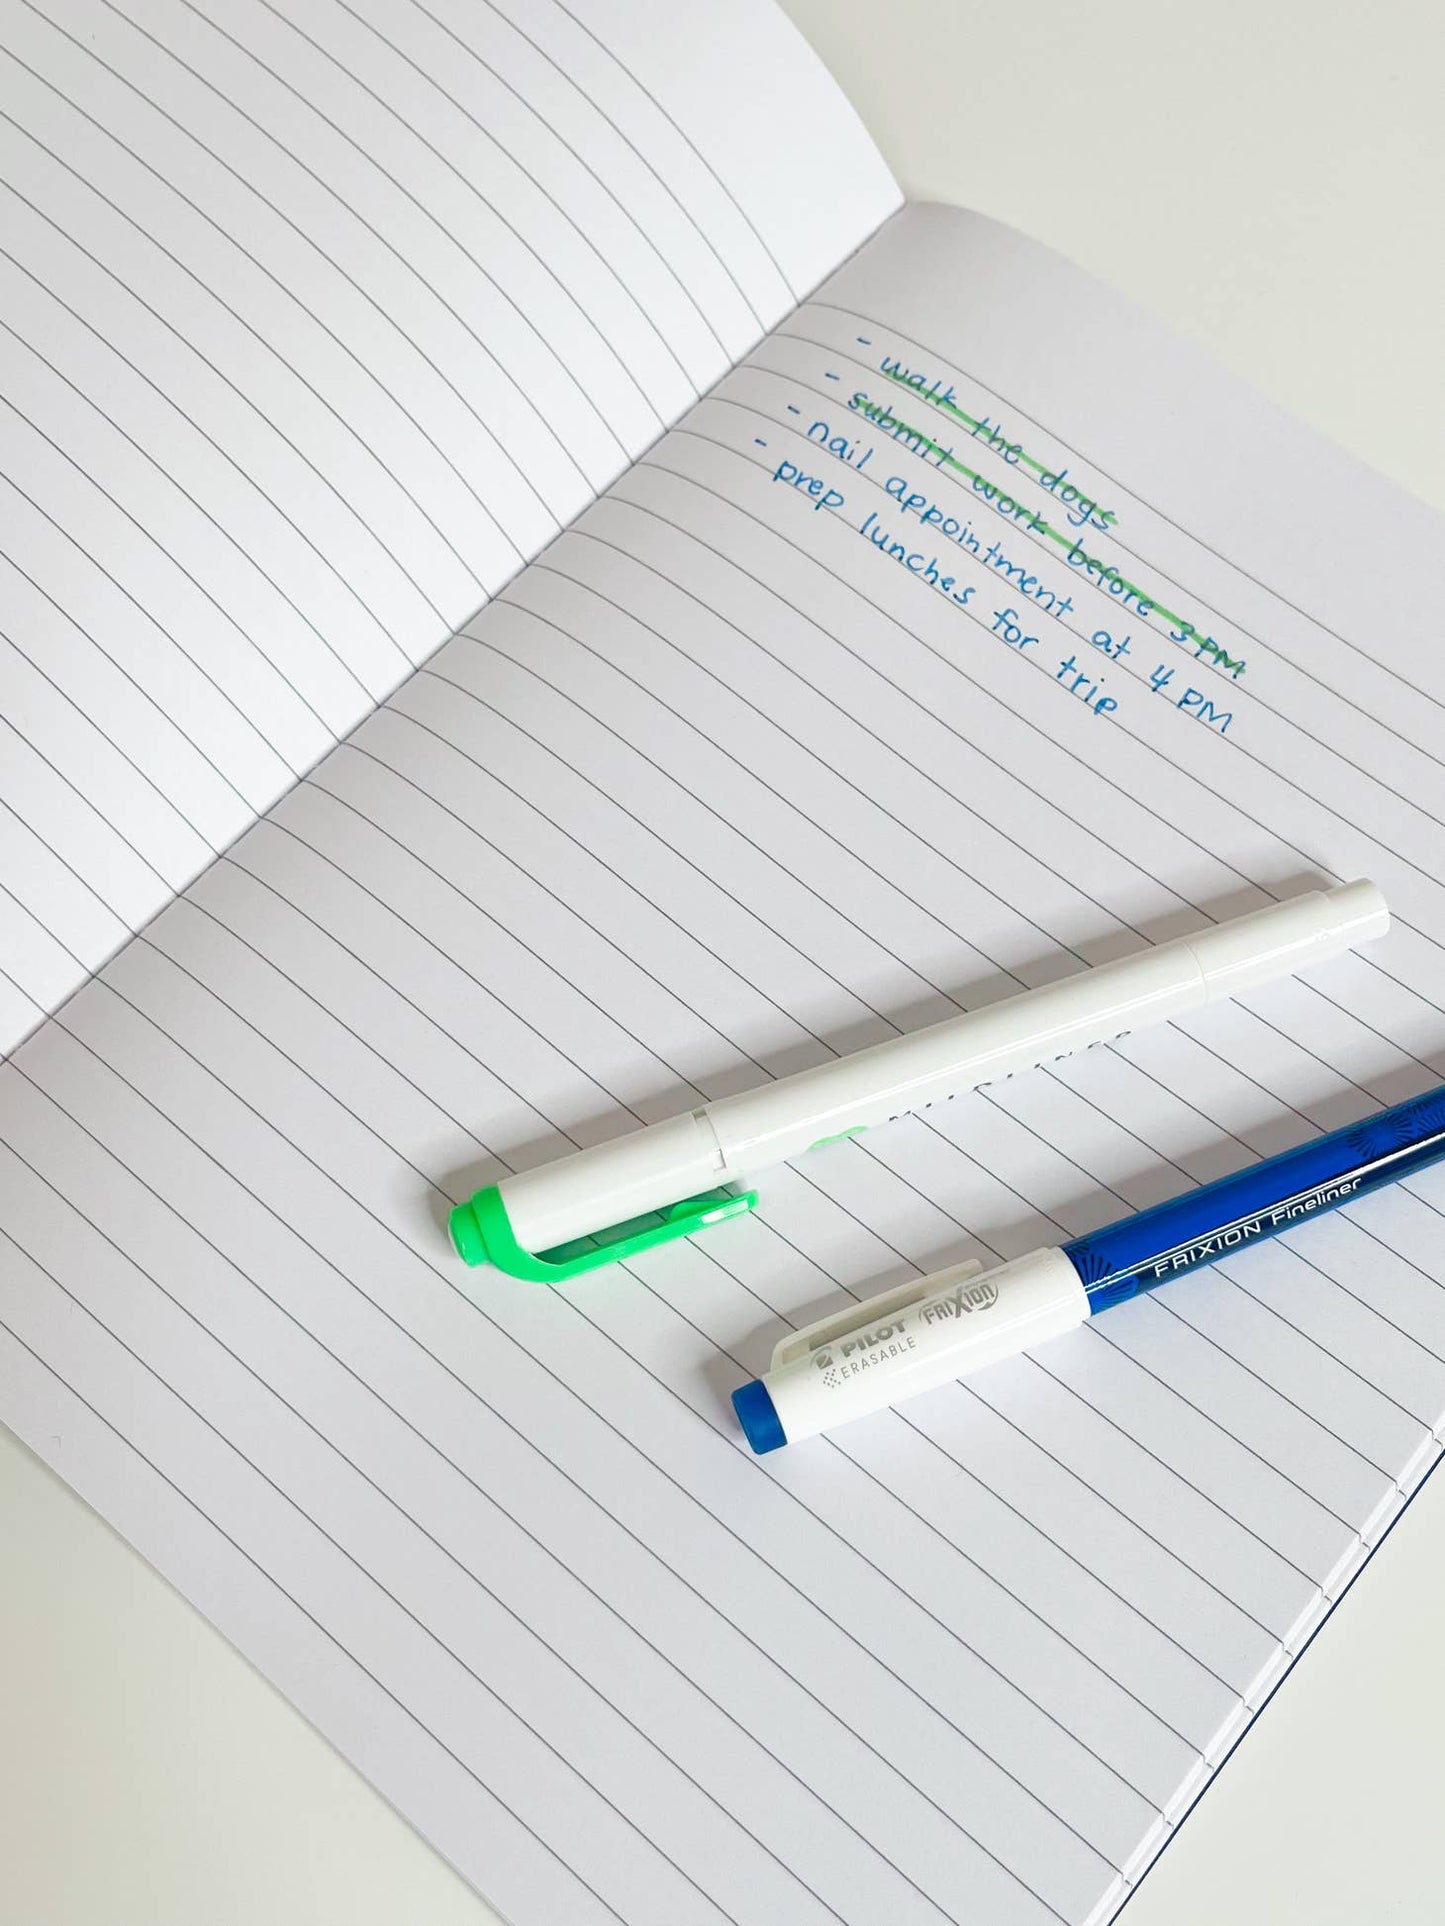 - walk the dogs
- submit work before 3 PM
- nail appointment at 4 PM
- prep lunches for trip
MILDLINER
FRIXION Fineliner
PILOT FRIXION
ERASABLE